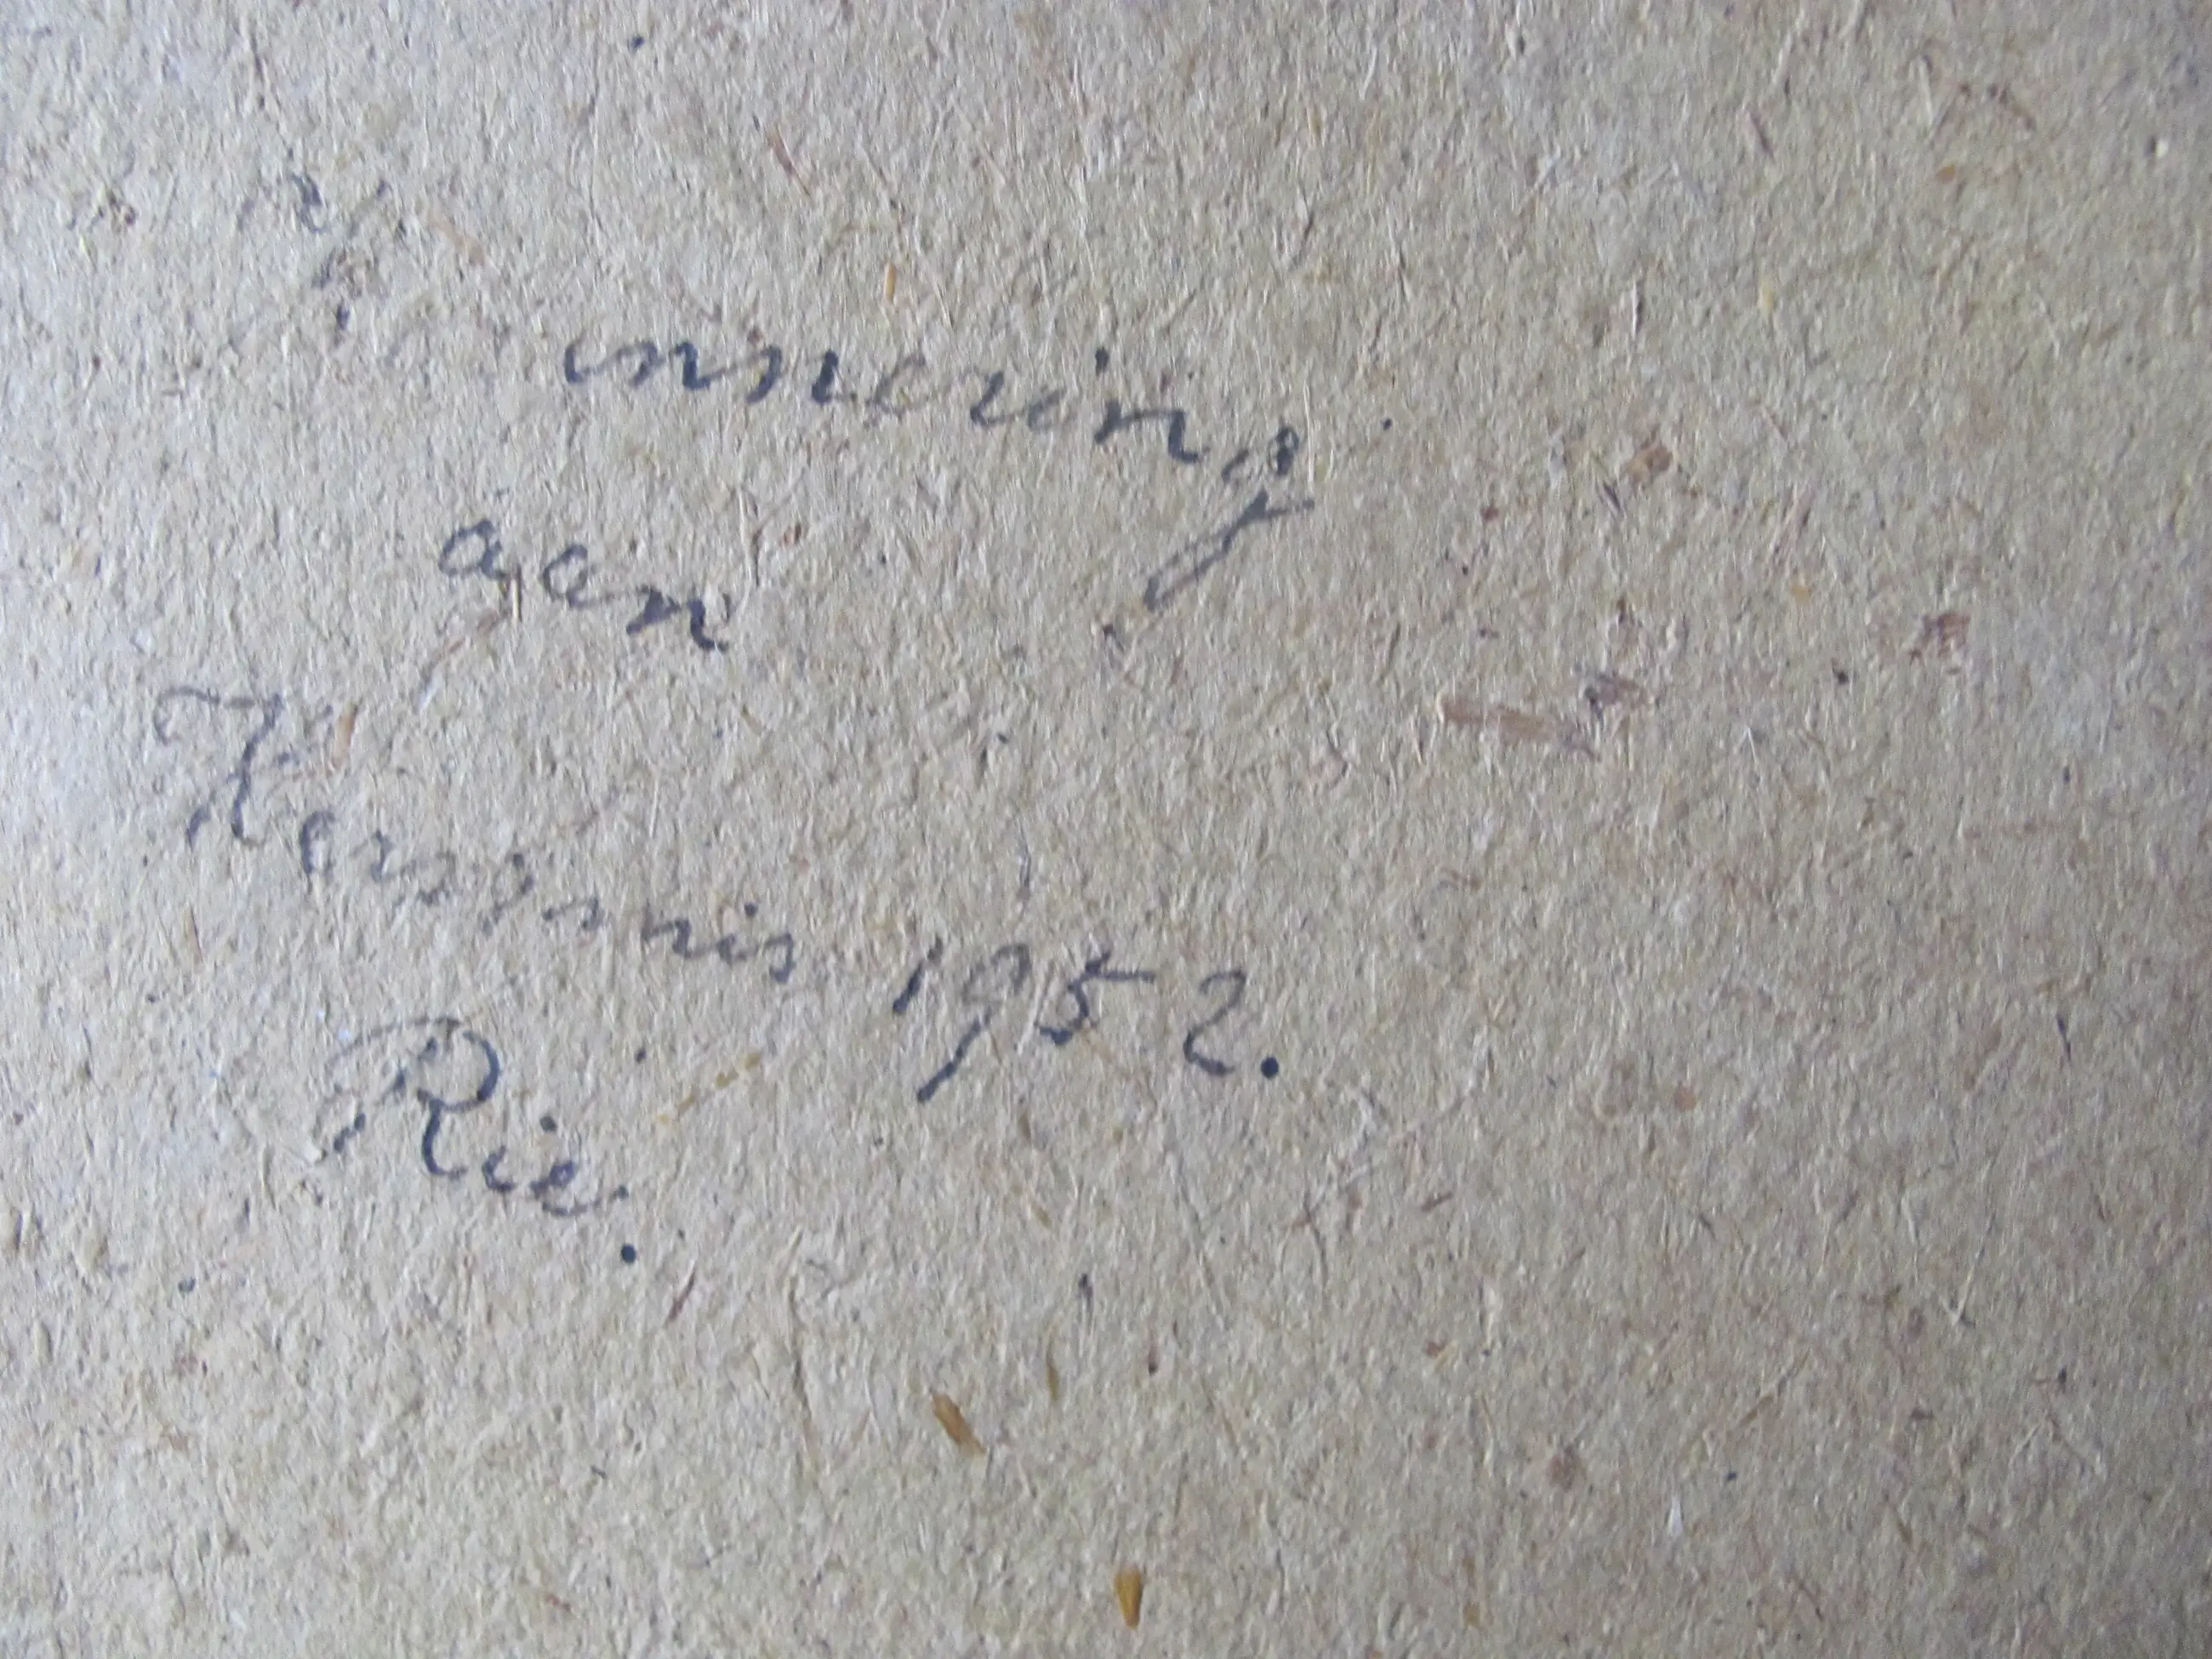 innering
aan
Kersmis 1952.
Rie.